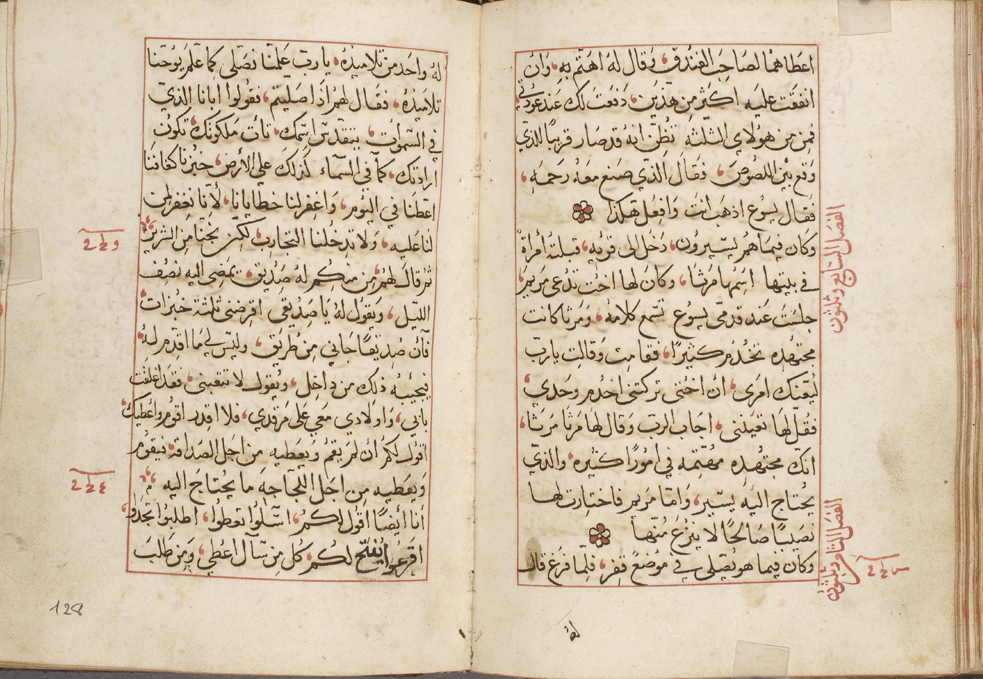 اعطاهما لصاحب الفندق، وقال له اهتم به، وان
انفقت عليه اكثر من هذين، دفعت لك عند عودتي،
فمن من هولاي الثلثة تظن انه قد صار قريبًا للذي
وقع بين اللصوص، فقال الذي صنع معه رحمه،
فقال يسوع اذهب انت وافعل هكذا
الفصل السابع وثلثون
وكان فيما هم يسيرون، دخل الى قريه، قبلته امراة
في بيتها اسمها مرثا، وكان لها اخت تدعى مريم،
جلست عند قدمي يسوع تسمع كلامه، ومرثا كانت
مجتهده تخدم كثيرًا، فقامت وقالت يارب
امرى، ان اختي تركتني اخدم وحدي
فقل لها تعينني، اجاب الرب وقال لها مرثا مرثا،
انك مجتهده مهتمه في امورًا كثيره، والذي
يحتاج اليه يسير، واما مريم فاختارت لها
نصيبًا صالحًا لا ينزع منها
الفصل الثامن وثلثون
وكان فيما هو يصلي في موضع قفر، فلما فرغ قال
له
له واحد من تلاميذه، يارب علمنا نصلي كما علم يوحنا
تلاميذه، فقال لهم اذا صليتم، فقولوا ابانا الذي
في السموات، يتقدس اسمك، تات ملكوتك، تكون
ارادتك، كما في السماء كذلك على الارض، خبزنا كفافنا
اعطنا في اليوم، واغفر لنا خطايانا، لاننا نغفر لمن
لنا عليه، ولا تدخلنا التجارب، لكن نجنا من الشرير
ثم قال لهم، من منكم له صديق، يمضي اليه نصف
الليل، ويقول له يا صديقي اقرضني ثلثة خبزات
فان صديقًا جاني من طريق، وليس لي ما اقدم له
فيجيبه ذلك من داخل، ويقول لا تتعبني، فقد اغلقت
بابي، واولادي معي على مرقدي، فلا اقدر اقوم واعطيك
اقول لكم ان لم يقم ويعطيه من اجل الصداقة، فيقوم
ويعطيه من اجل اللجاجه ما يحتاج اليه
انا ايضًا اقول لكم، اسئلوا تعطوا، اطلبوا تجدوا،
اقرعوا يفتح لكم، كل من سأل اعطي، ومن طلب
128